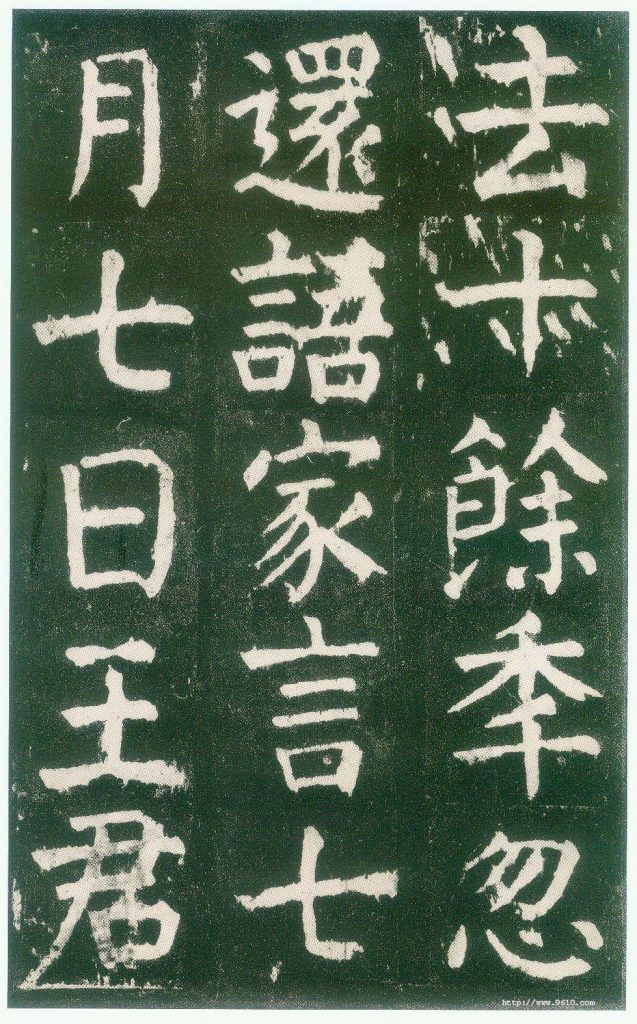 去十餘秊忽
還語家言七
月七日王君
http://www.9610.com